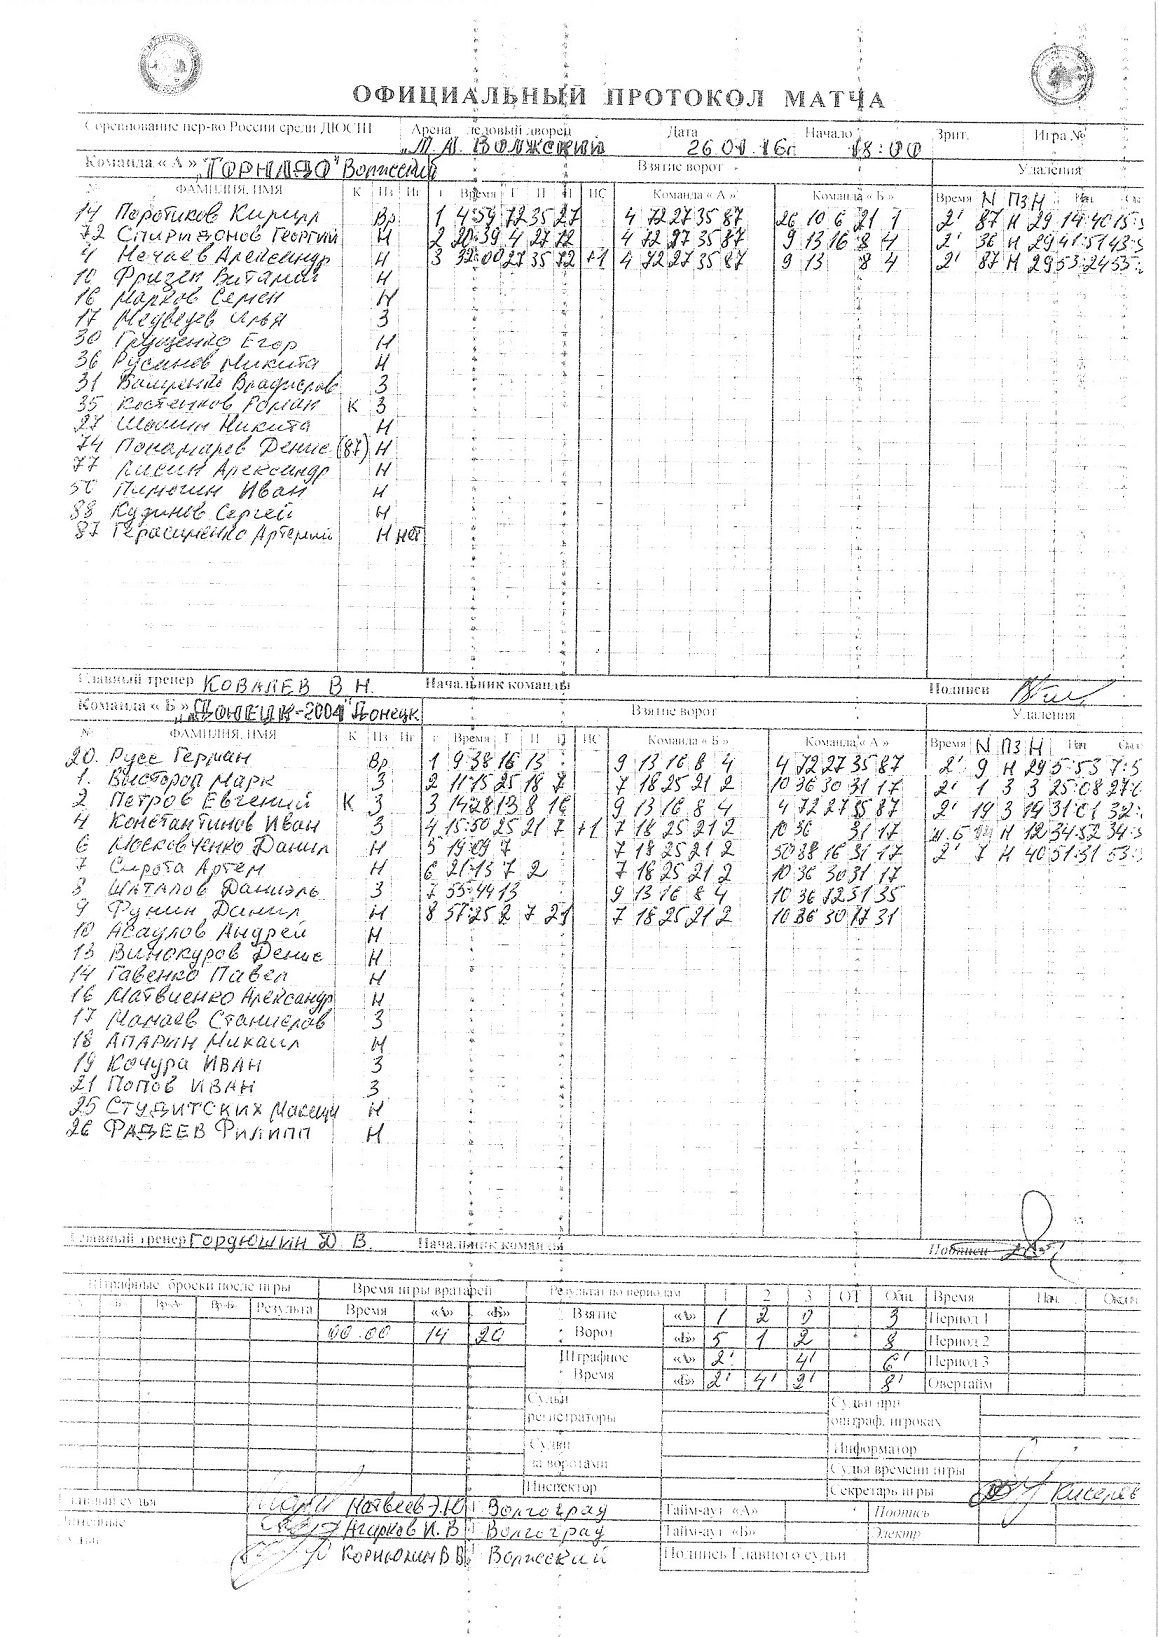 ОФИЦИАЛЬНЫЙ ПРОТОКОЛ МАТЧА
Соревнование пер-во России среди ДЮСШ Арена Ледовый дворец Дата Начало Зрит. Игра №
Волжский 26.01.16г 18:00
Команда « А » "ТОРНАДО" Волжский Взятие ворот Удаления
№ ФАМИЛИЯ, ИМЯ К Пз Иг Время Г П П ИС Команда « А » Команда « Б » Время N ПЗ Н Нач
14 Кирилл Вр. 1 4:59 72 35 27 4 72 27 35 87 26 10 6 21 7 2' 87 Н 29 14:40
72 Спиридонов Георгий Н 2 20:39 4 27 72 4 72 27 35 87 9 13 16 8 4 2' 36 Н 29 41:51
4 Нечаев Александр Н 3 32:00 27 35 72 +1 4 72 27 35 87 9 13 8 4 2' 87 Н 29 53:24
10 Фризен Виталий Н
16 Марков Семен Н
17 Медведев Илья З
30 Грищенко Егор Н
36 Русанов Никита Н
31 З
35 Роман К З
27 Шашин Никита Н
74 Пономарев Денис (87) Н
77 Лисин Александр Н
50 Пилюгин Иван Н
88 Кудинов Сергей Н
87 Герасименко Артемий Н нет
Главный тренер КОВАЛЕВ В Н. Начальник команды Подписи
Команда « Б » "ДОНЕЦК-2004" Донецк Взятие ворот Удаления
№ ФАМИЛИЯ, ИМЯ К Пз Иг Время Г П П ИС Команда « Б » Команда « А » Время N ПЗ Н Нач
20. Русс Герман Вр. 1 9:38 16 13 9 13 16 8 4 4 72 27 35 87 2' 9 Н 29 5:53
1. Марк З 2 11:15 25 18 7 7 18 25 21 2 10 36 30 31 17 2' 1 З 3 25:08
2 Петров Евгений К З 3 14:28 13 8 16 9 13 16 8 4 4 72 27 35 87 2' 19 З 19 31:01
4 Константинов Иван З 4 15:50 25 21 7 +1 7 18 25 21 2 10 36 31 17 Н 12 34:52
6 Московченко Данил Н 5 19:09 7 7 18 25 21 2 50 88 16 31 17 2' 7 Н 40 51:31
7 Сирота Артем Н 6 21:13 7 2 7 18 25 21 2 10 36 30 31 17
8 Шаталов Даниэль З 7 55:44 13 9 13 16 8 4 10 36 72 31 35
9 Фунин Данил Н 8 57:25 2 7 21 7 18 25 21 2 10 36 30 17 31
10 Асаулов Андрей Н
13 Винокуров Денис Н
14 Гавенко Павел Н
16 Матвиенко Александр Н
17 Мамаев Станислав З
18 АПАРИН Михаил Н
19 Кочура ИВАН З
21 Попов ИВАН З
25 СТУДИТСКИХ Н
26 ФАДЕЕВ Филипп Н
Главный тренер ГОРДЮШИН Д. В. Начальник команды Подписи
Штрафные броски после игры Время игры вратарей Результат по периодам 1 2 3 ОТ Общ Время Нач. Окон
Результа Время «А» «Б» Взятие «А» 1 2 0 3 Период 1
00:00 14 20 Ворот «Б» 5 1 2 8 Период 2
Штрафное «А» 2' 4' 6' Период 3
Время «Б» 2' 4' 2' 8' Овертайм
Судьи регистраторы Судьи при оштраф. игроках
Судьи за воротами Информатор
Судья времени игры
Инспектор Секретарь игры Киселев
Главный судья Матвеев Э.Ю. Волгоград Тайм-аут «А» Подпись
Линейные Агарков И. В. Волгоград Тайм-аут «Б» Электр
судьи Корнюхин В В. Волжский Подпись Главного судьи